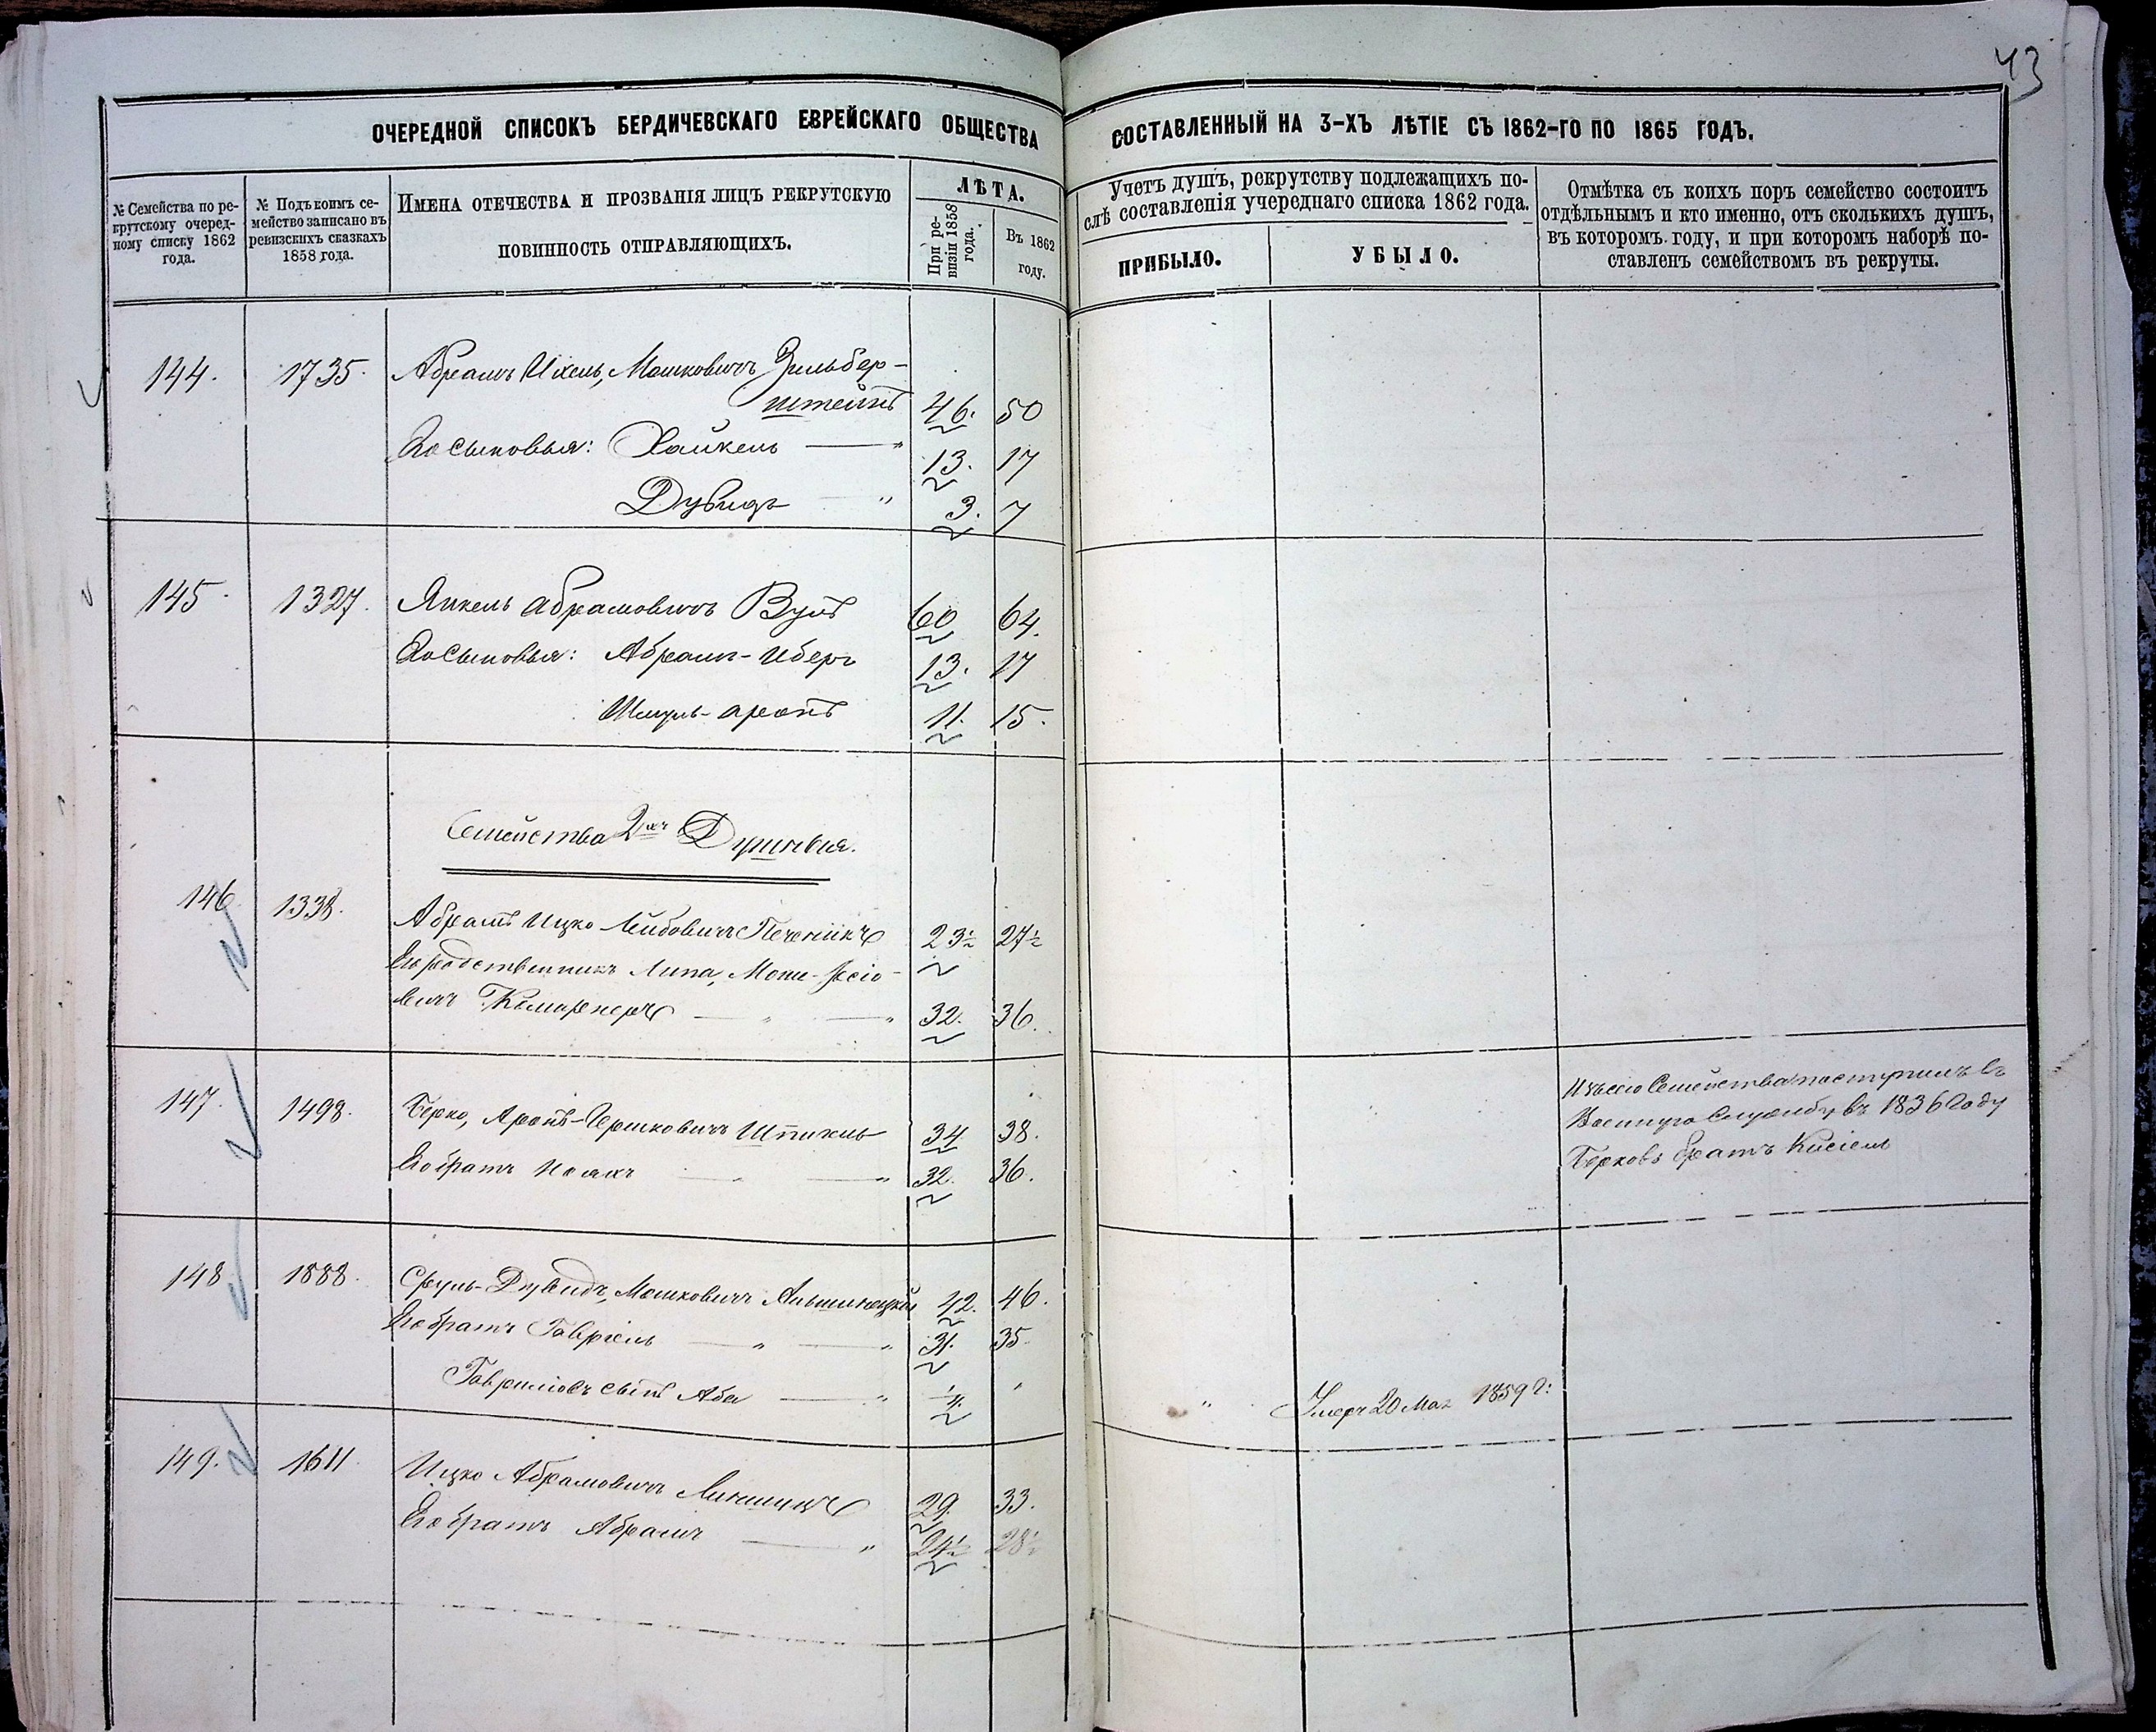 43
ОЧЕРЕДНОЙ СПИСОКЪ БЕРДИЧЕВСКАГО ЕВРЕЙСКАГО ОБЩЕСТВА СОСТАВЛЕННЫЙ НА 3-ХЪ ЛѢТІЕ СЪ 1862-ГО ПО 1865 ГОДЪ.
№ Семейства по ре-
крутскому очеред-
ному списку 1862
года.
№ Подъ коимъ се-
мейство записано въ
ревизскихъ сказкахъ
1858 года.
ИМЕНА ОТЕЧЕСТВА И ПРОЗВАНІЯ ЛИЦЪ РЕКРУТСКУЮ
ПОВИННОСТЬ ОТПРАВЛЯЮЩИХЪ.
ЛѢТА.
При ре-
визіи 1858
года.
Въ 1862
году.
Учетъ душъ, рекрутству подлежащихъ по-
слѣ составленія учереднаго списка 1862 года.
ПРИБЫЛО.
УБЫЛО.
Отмѣтка съ коихъ поръ семейство состоитъ
отдѣльнымъ и кто именно, отъ сколькихъ душъ,
въ которомъ году, и при которомъ наборѣ по-
ставленъ семействомъ въ рекруты.
144. 1735. Абрамъ Ихель, Мошковичъ Зильбер-
штейнъ 46. 50
Его сыновья: Хайкель — " 13. 17
Дувидъ " 3. 7
145. 1327. Янкель Абрамовичъ Вулъ 60 64.
Его сыновья: Абрамъ-Иберъ 13. 17
Шмуль-Аронъ 11. 15.
Семейства 2хъ Душныя.
146. 1338. Абрамъ Ицко Лейбовичъ Печеникъ 23½ 27½
Его родственникъ Липа, Мони-
вичъ — " — " 32. 36.
147. 1498. Берко, Аронъ-Гершковичъ Шпигель 34 38.
Его братъ Ноахъ — " — " 32. 36.
Изъ сего Семейства поступилъ въ
Военную Службу въ 1836 Году
Берковъ братъ Кисіель
148. 1888. Сруль-Дувидъ, Мошковичъ 42. 46.
Его братъ Гавріель — " — " 31. 35.
Гавриловъ сынъ Аба — " ¼. "
" Умеръ 20 Мая 1859 г:
149. 1611. Ицко Абрамовичъ 29. 33.
Его братъ Абрамъ — " 24½ 28½